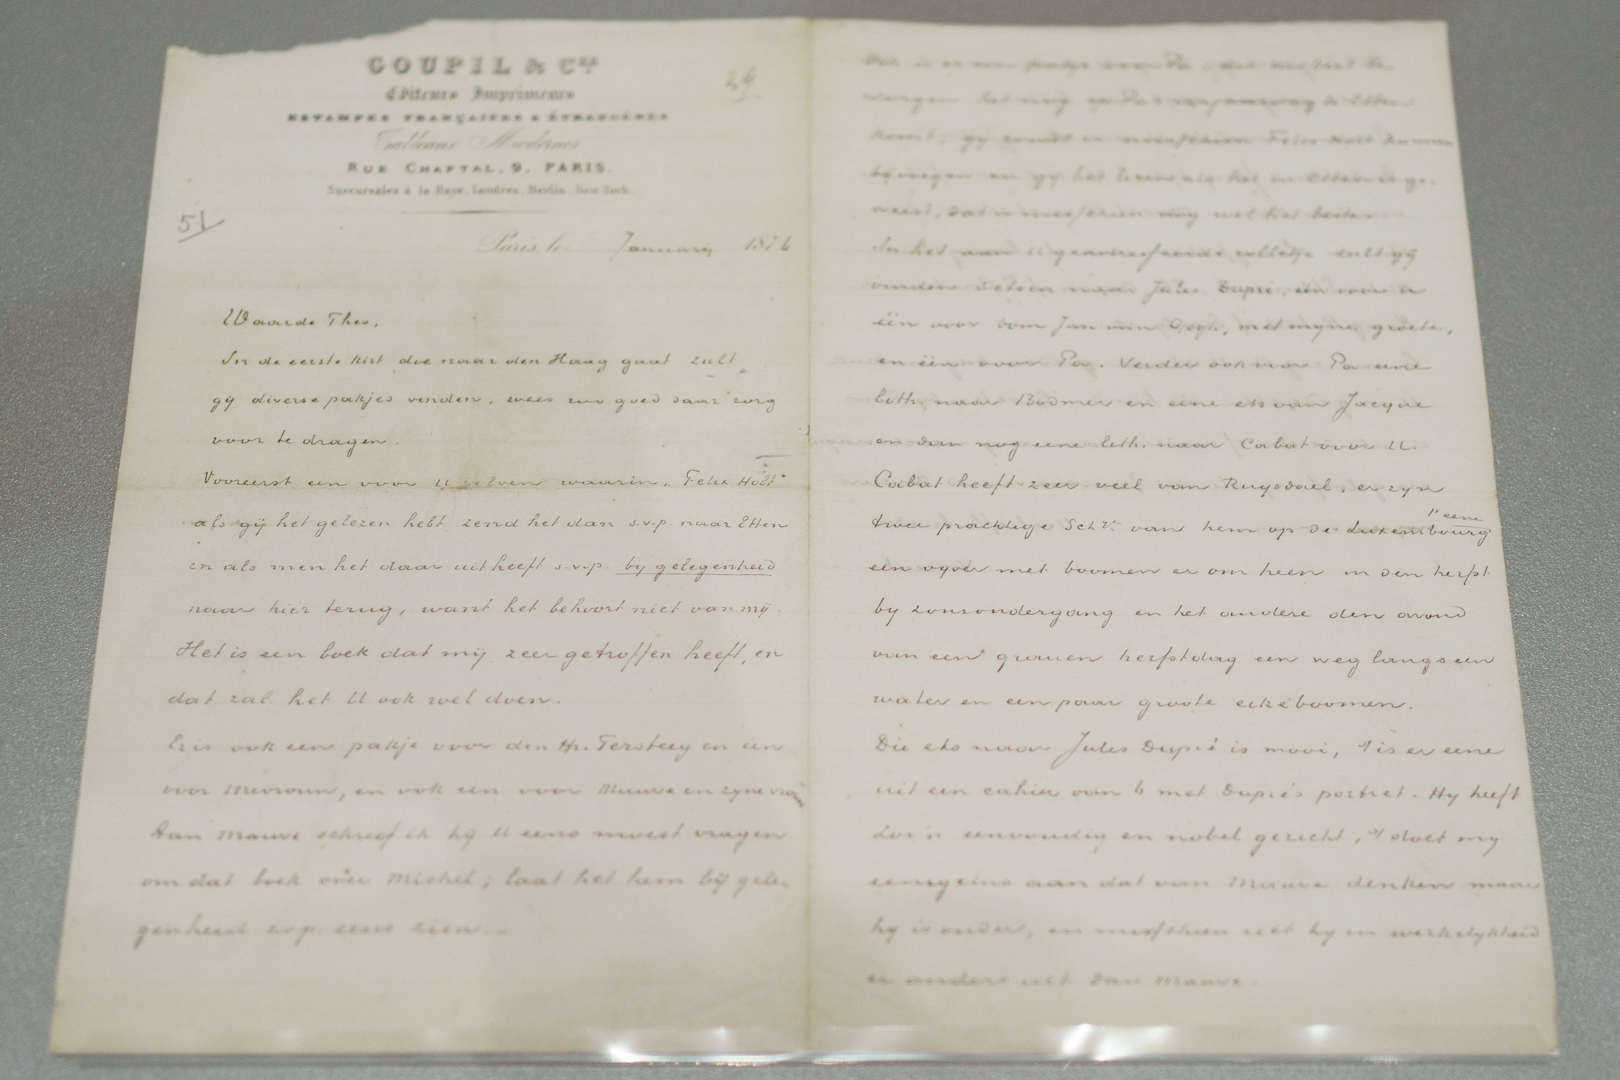 GOUPIL & Cie
Editeurs Imprimeurs
ESTAMPES FRANÇAISES & ÉTRANGÈRES
Tableaux Modernes
RUE CHAPTAL, 9, PARIS.
Succursales à la Haye, Londres, Berlin, New-York
29
51
Paris, le January 1876
Waarde Theo,
In de eerste kist die naar den Haag gaat zult
gy diverse pakjes vinden, wees zoo goed daar zorg
voor te dragen.
Vooreerst een voor U zelven waarin, Felix Holt
als gij het gelezen hebt zend het dan s.v.p. naar Etten
en als men het daar uit heeft s.v.p. by gelegenheid
naar hier terug, want het behoort niet van mij.
Het is een boek dat mij zeer getroffen heeft, en
dat zal het U ook wel doen.
Er is ook een pakje voor den Hr. Tersteeg en een
voor Mevrouw, en ook een voor Mauve en zyne vrouw
Aan Mauve schreef ik hy U eens moest vragen
om dat boek over Michel; laat het hem bij gele-
genheid s.v.p. eens zien.
Ook is er een pakje voor Pa, doe uw best te
zorgen het nog op Pa's verjaardag te Etten
komt, gy zoudt er misschien Felix Holt kunnen
byvoegen en gy het lezen als het in Etten is ge-
weest, dat is misschien nog wel het beste.
In het aan U geadresseerde rolletje zult gy
vinden 3 etsen naar Jules Dupré, één voor U
één voor oom Jan van Gogh, met myne groete,
en één voor Pa. Verder ook voor Pa eene
lith. naar Bodmer en eene ets van Jacque
en dan nog eene lith. naar Cabat voor U.
Cabat heeft zeer veel van Ruysdael, er zyn
twee prachtige Sch. van hem op de Luxembourg
't eene
een vyver met boomen er om heen in den herfst
by zonsondergang en het andere den avond
van een grauwen herfstdag een weg langs een
water en een paar groote eikeboomen.
Die ets naar Jules Dupré is mooi, 't is er eene
uit een cahier van 6 met Dupré's portret. Hy heeft
zoo'n eenvoudig en nobel gezicht, 't doet my
eenigzins aan dat van Mauve denken maar
hy is ouder, en misschien ziet hy in werkelykheid
er anders uit dan Mauve.